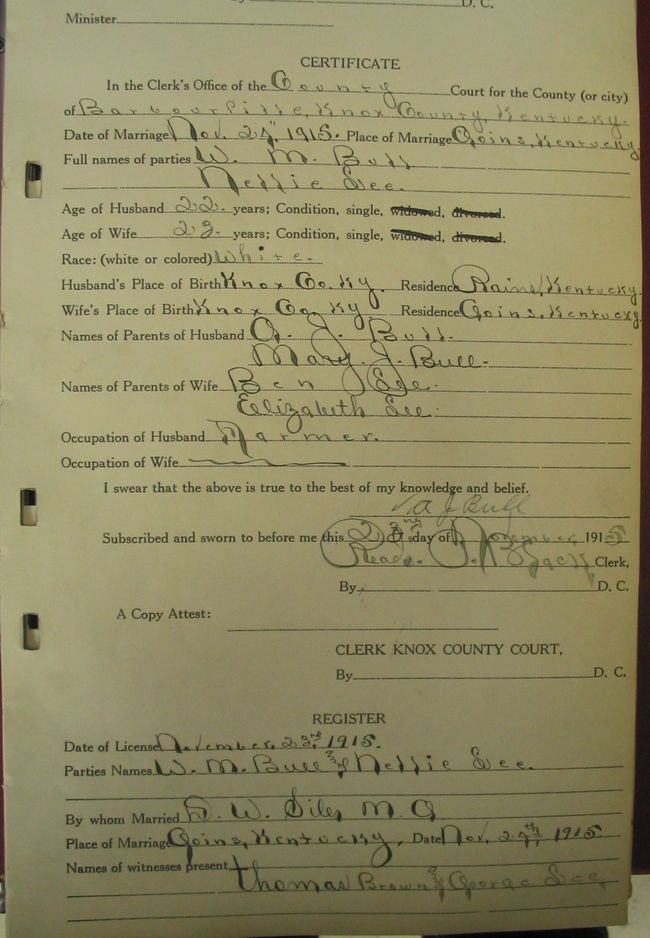 D. C.
Minister
CERTIFICATE
In the Clerk's Office of the County Court for the County (or city)
of Barbourville, Knox County, Kentucky.
Date of Marriage Nov. 24", 1915. Place of Marriage Goins, Kentucky.
Full names of parties W. M. Bull
Nellie Lee.
Age of Husband 22 years; Condition, single, widowed, divorced.
Age of Wife years; Condition, single, widowed, divorced.
Race: (white or colored) White.
Husband's Place of Birth Knox Co. Ky. Residence Rains, Kentucky.
Wife's Place of Birth Knox Co Ky Residence Goins, Kentucky.
Names of Parents of Husband J. Bull.
Mary J. Bull.
Names of Parents of Wife Ben Lee.
Elizabeth Lee.
Occupation of Husband Farmer.
Occupation of Wife
I swear that the above is true to the best of my knowledge and belief.
J Bull
Subscribed and sworn to before me this day of November, 1915
Read. Clerk,
By D. C.
A Copy Attest:
CLERK KNOX COUNTY COURT.
By D. C.
REGISTER
Date of License November, 23rd, 1915.
Parties Names W. M. Bull & Nellie Lee.
By whom Married W. Siler M. G.
Place of Marriage Goins, Kentucky, Date Nov. 24th, 1915
Names of witnesses present
Thomas Brown & George Lee